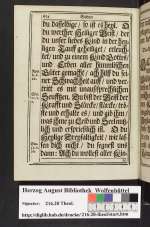 du dasselbige / so ist es heyl. O
du werther Heiliger Geist / der
du unser liebes Kind in der hey-
ligen Tauff geheiliget / erleuch-
tet / und zu einem Kind Gottes/
und Erben aller himmlischen
Güter gemacht / ach hilff du sei-
ner Schwachheit auff / und ver-
tritt es mit unaußsprechlichem
Seufftzen. Du bist der Geist der
Krafft und Stärcke / stärcke
und erhalte es / und gib ihm
was ihme zu Leib und Seel nütz-
lich und ersprießlich ist. O du
Heilige Dreyfaltigkeit / wir
dich nicht / du segnest uns
dann: Ach du wollest aller
Herzog August Bibliothek Wolfenbüttel
Signatur: 216.20 Theol.
http://diglib.hab.de/drucke/216-20-theol/start.htm